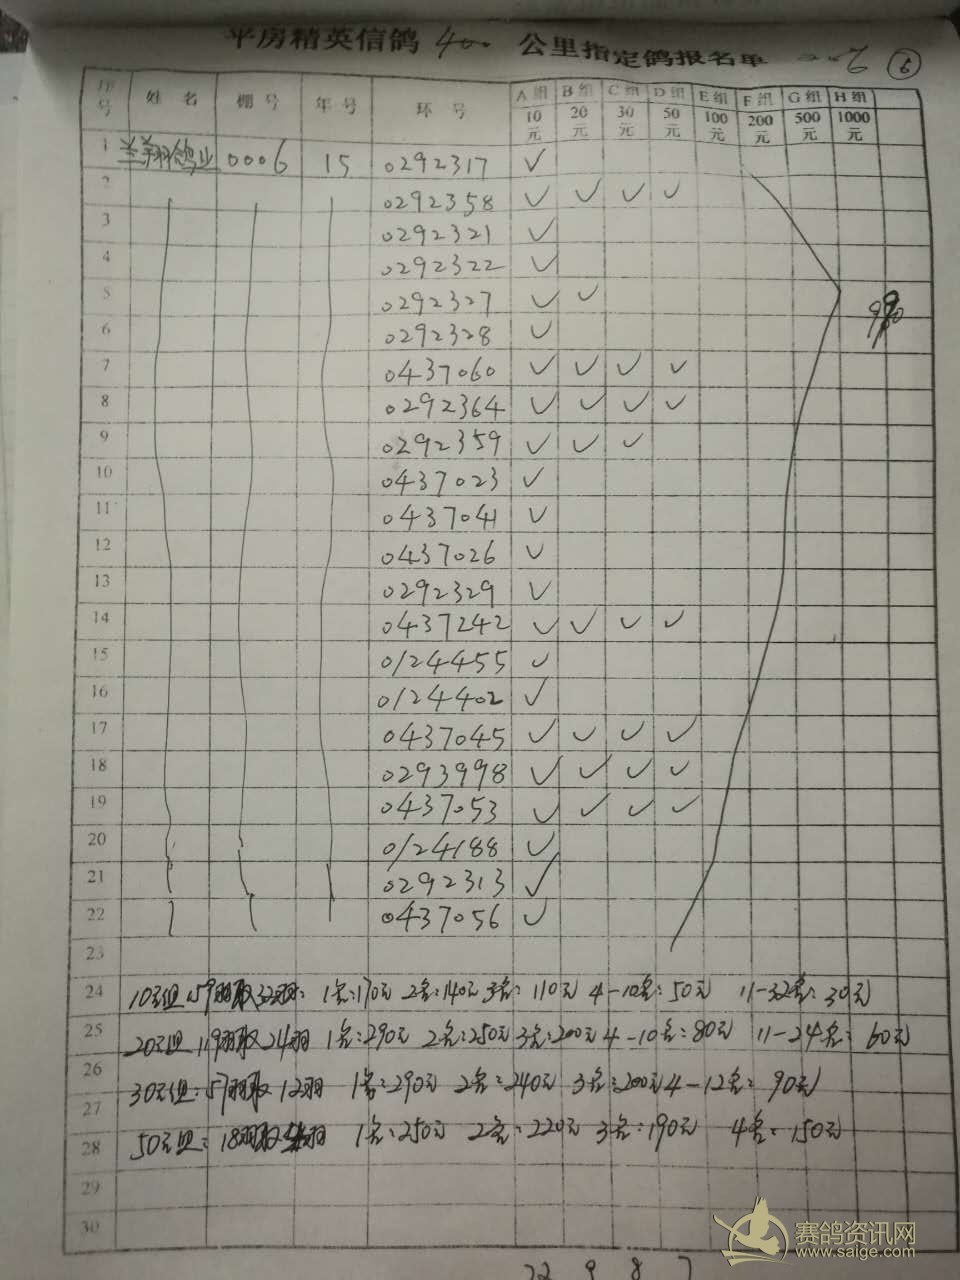 平房精英信鸽 400 公里指定鸽报名单 6
序号 姓名 棚号 年号 环号 A组 10元 B组 20元 C组 30元 D组 50元 E组 100元 F组 200元 G组 500元 H组 1000元
1 兰翔鸽业 0006 15 0292317 ✓
2 0292358 ✓ ✓ ✓ ✓
3 0292321 ✓
4 0292322 ✓
5 0292327 ✓ ✓
6 0292328 ✓
7 0437060 ✓ ✓ ✓ ✓
8 0292364 ✓ ✓ ✓ ✓
9 0292359 ✓ ✓ ✓
10 0437023 ✓
11 0437041 ✓
12 0437026 ✓
13 0292329 ✓
14 0437242 ✓ ✓ ✓ ✓
15 0124455 ✓
16 0124402 ✓
17 0437045 ✓ ✓ ✓ ✓
18 0293998 ✓ ✓ ✓ ✓
19 0437053 ✓ ✓ ✓ ✓
20 0124188 ✓
21 0292313 ✓
22 0437056 ✓
23
24 10元组 159羽取32羽: 1名:170元 2名:140元 3名: 110元 4-10名:50元 11-32名: 30元
25 20元组 119羽取24羽 1名:290元 2名:250元 3名:200元 4-10名:80元 11-24名: 60元
26
27 30元组:57羽取12羽 1名:290元 2名:240元 3名:200元 4-12名: 90元
28 50元组: 18羽取4羽 1名:250元 2名:220元 3名:190元 4名: 150元
29
30
赛鸽资讯网
www.saige.com
22 9 8 7